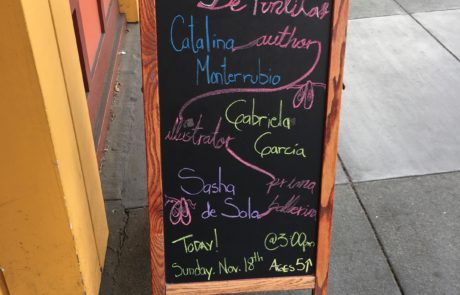 De Puntitas
Catalina author
Monterrubio
Gabriela
illustrator García
Sasha prima
de Sola ballerina
Today! @3:00pm
Sunday, Nov. 18th Ages 5↑